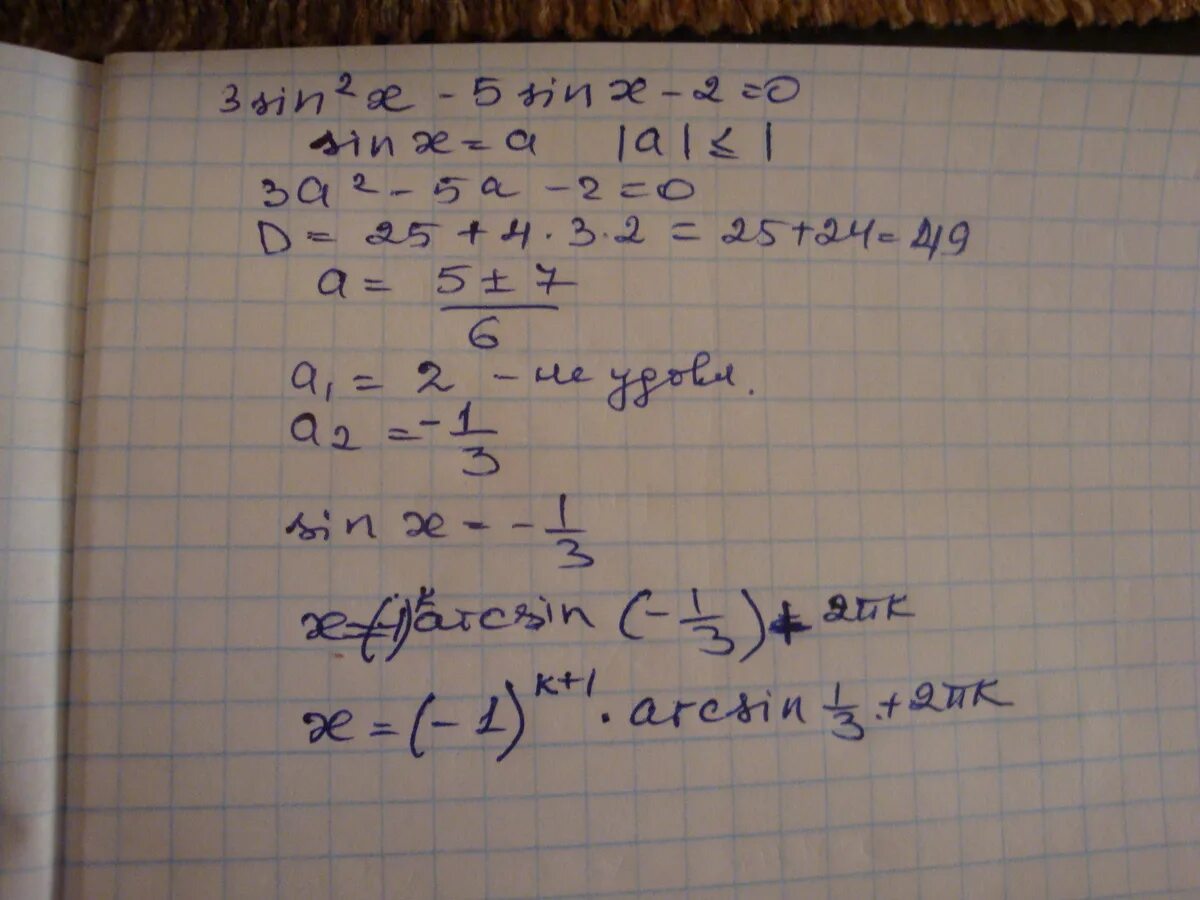 3 sin² x - 5 sin x - 2 = 0
sin x = a |a| ≤ 1
3a² - 5a - 2 = 0
D = 25 + 4 · 3 · 2 = 25 + 24 = 49
a = (5 ± 7)/6
a₁ = 2 - не удовл.
a₂ = -1/3
sin x = -1/3
x = (-1)ᵏ arcsin (-1/3) + 2πk
x = (-1)ᵏ⁺¹ · arcsin 1/3 + 2πk